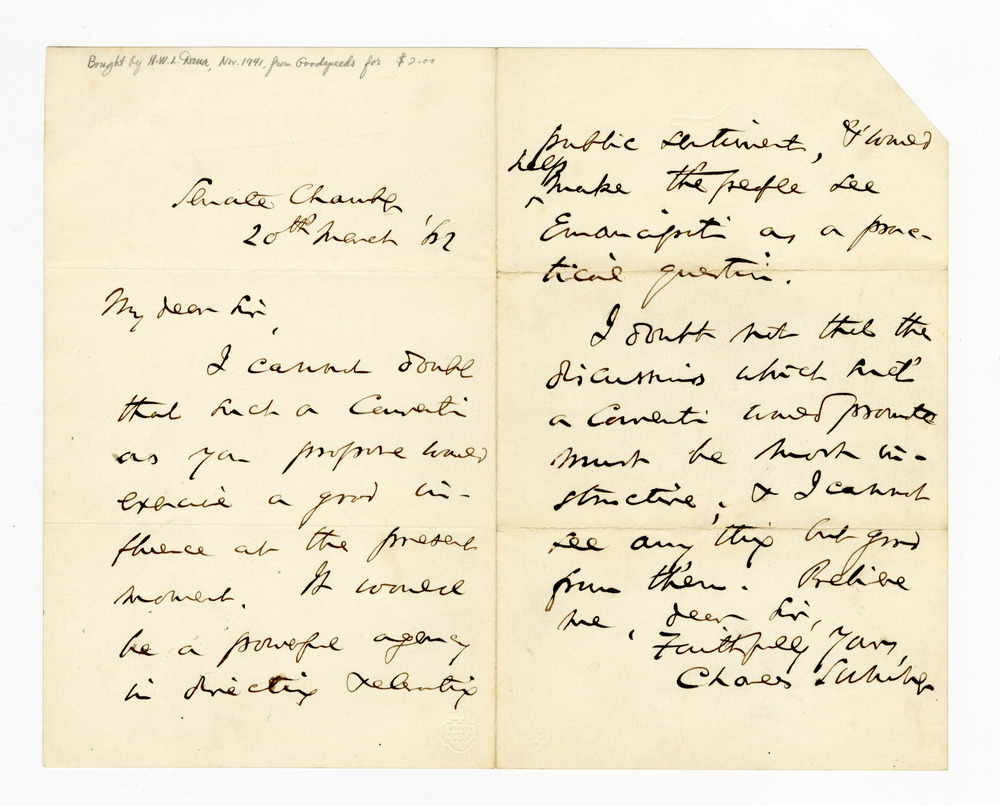 Bought by H.W.L. Dana, Nov. 1941, from Goodspeeds for $2.00
Senate Chamber
20th March '62
My dear Sir,
I cannot doubt
that such a Convention
as you propose would
exercise a good in-
fluence at the present
moment. It would
be a powerful agency
in directing & elevating
public sentiment, & would
help
make the people see
Emancipation as a prac-
tical question.
I doubt not that the
discussions which such
a Convention would promote
must be most in-
structive; & I cannot
see any thing but good
from them. Believe
me, dear Sir,
Faithfully Yours,
Charles Sumner